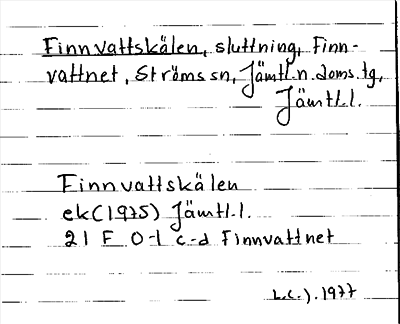 Finnvattskälen, sluttning, Finn-
vattnet, Ströms sn, Jämtl.n.doms.tg,
Jämtl.l.
Finnvattskälen
ek(1975) Jämtl.l.
21 F 0-1 c-d Finnvattnet
L.C.J. 1977